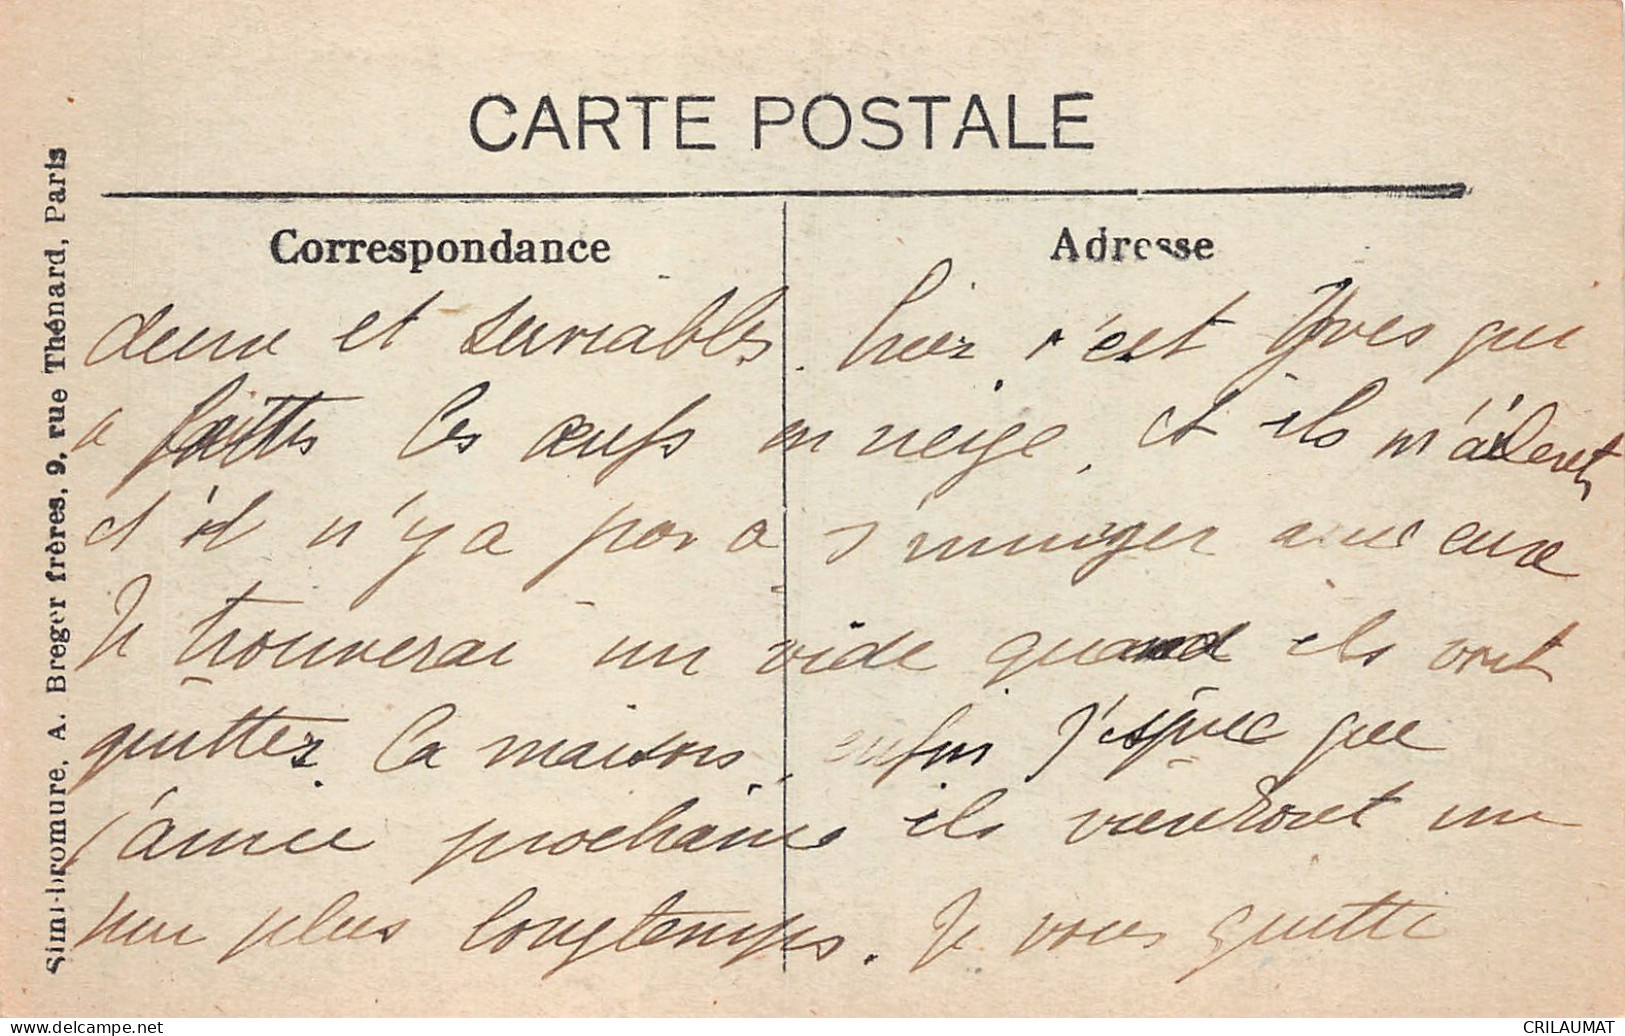 CARTE POSTALE
Correspondance
Adresse
Simi-bromure, A. Breger frères, 9, rue Thénard, Paris
deux et serviables. hier c'est Yves qui
a faitts les œufs en neige, et ils m'aident
et il n'y a pas à s' avec eux
Je trouverai un vide quand ils vont
quitter la maison, enfin j'espèce que
l'année prochaine ils viendront un
peu plus longtemps. Je vous quitte
CRILAUMAT